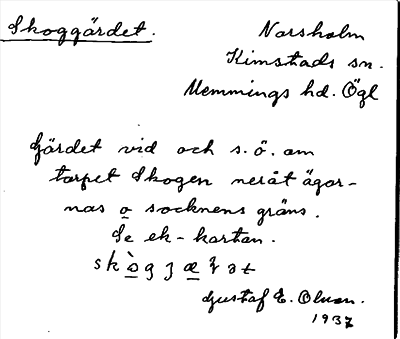 Skoggärdet.
Norsholm
Kimstads sn.
Memmings hd. Ögl
Gärdet vid och s.ö. om
torpet Skogen neråt ägor-
nas o socknens gräns.
Se ek-kartan.
Gustaf E. Olsson.
1937